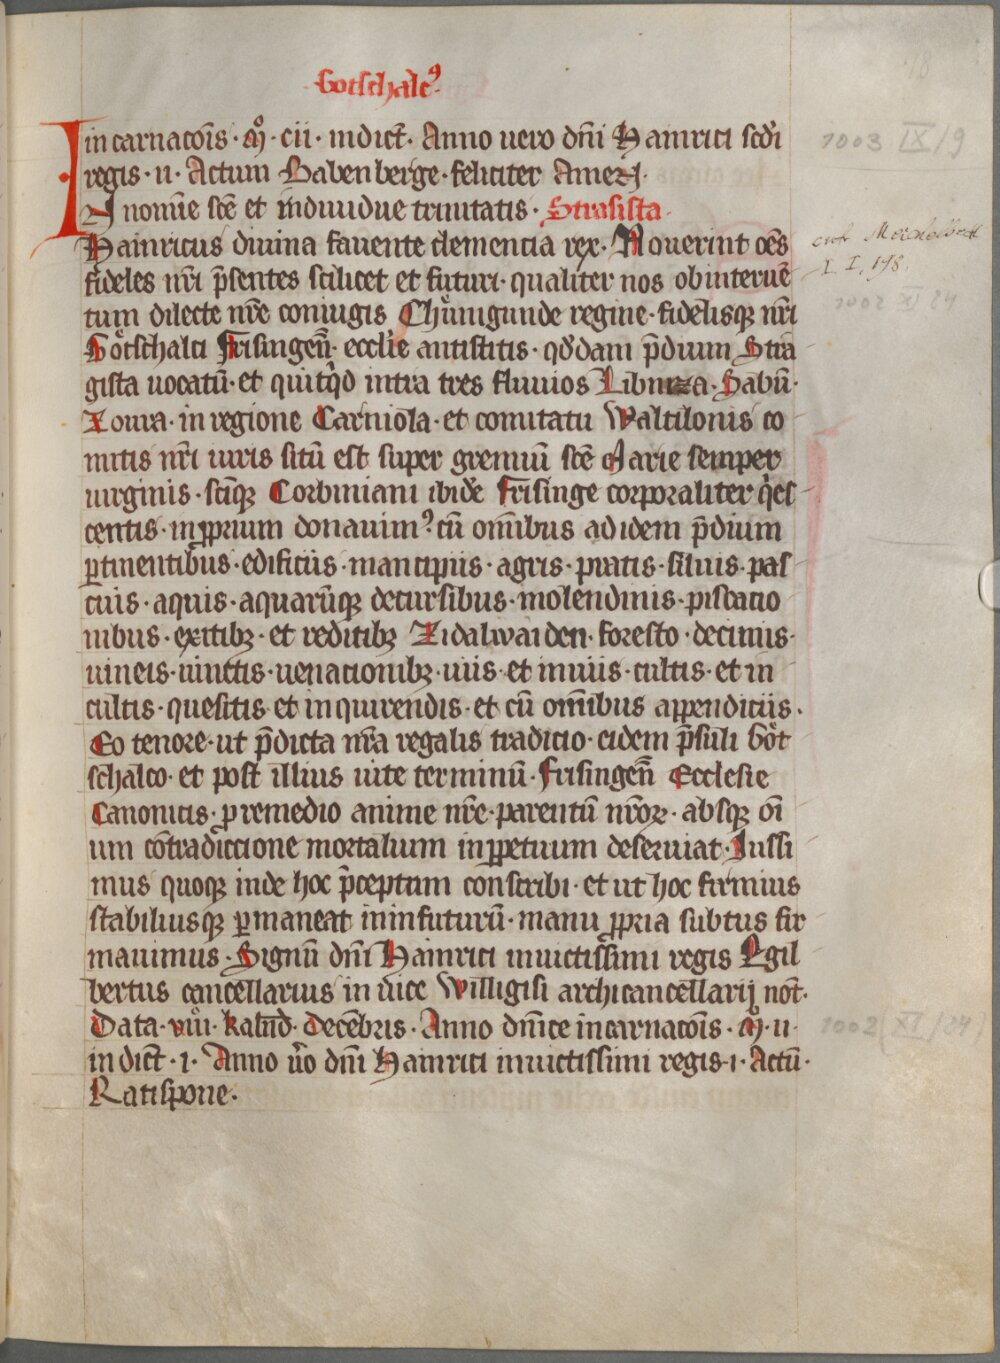 Gotschalcꝰ
incarnacōis · Mͦ · cii · indict̄ · Anno uero dn̄i Hainrici sc̄di
regis · ii · Actum Babenberge · feliciter Amen ·
In nomīe sc̄e et indiuidue trinitatis · Strasista ·
Hainricus diuina fauente clemencia rex · Nouerint oēs
fideles nr̄i p̄sentes scilicet et futuri · qualiter nos ob interuē
tum dilecte nr̄e coniugis Chůnigunde regine · fidelisqꝫ nr̄i
Gotschalci Frisingen̄ · eccl̄ie antistitis · qͦddam p̄dium Stra
gista uocatū · et quitqͥd intra tres fluuios Libniza · Sabū ·
Zoura · in regione Carniola · et comitatu Waltilonis co
mitis nr̄i iuris sitū est super gremiū sc̄e Marie semper
uirginis · sc̄iqꝫ Corbiniani ibidē Frisinge corporaliter qͥes
centis · in ꝓprium donauimꝰ · cū omībus ad idem p̄dium
ꝑtinentibus · edificiis · mancipiis · agris · pratis · siluis · pas
cuis · aquis · aquarūqꝫ decursibus · molendinis · piscacio
nibus · exitibꝫ · et reditibꝫ Zidalwaiden · foresto · decimis ·
uineis · uinctis · uenacionibꝫ · uiis · et inuiis · cultis · et in
cultis · quesitis · et inquirendis · et cū omībus appendiciis ·
Eo tenore · ut p̄dicta nr̄a regalis tradicio · eidem p̄suli Got
schalco · et post illius uite terminū · Frisingen̄ Ecclesie
Canonicis · ꝓ remedio anime nr̄e · parentū nr̄oꝝ · absqꝫ oī
um cōtradiccione mortalium in ꝑpetuum deseruiat · Iussi
mus quoqꝫ inde hoc p̄ceptum conscribi · et ut hoc firmius
stabiliusqꝫ ꝑmaneat in infuturū · manu ꝓpria subtus fir
mauimus · Signū dn̄i Hainrici inuictissimi regis Egil
bertus cancellarius in uice Willigisi archicancellarij not̄ ·
Data · viiiͦ · kalnd̄ · decēbris · Anno dn̄ice incarnacōis · Mͦ · ii ·
indict̄ · i · Anno ůo dn̄i Hainrici inuictissimi regis · i · Actū ·
Ratispone ·
1003 IX/9
I. I, 198.
1002 XI 24
1002 (XI/24)